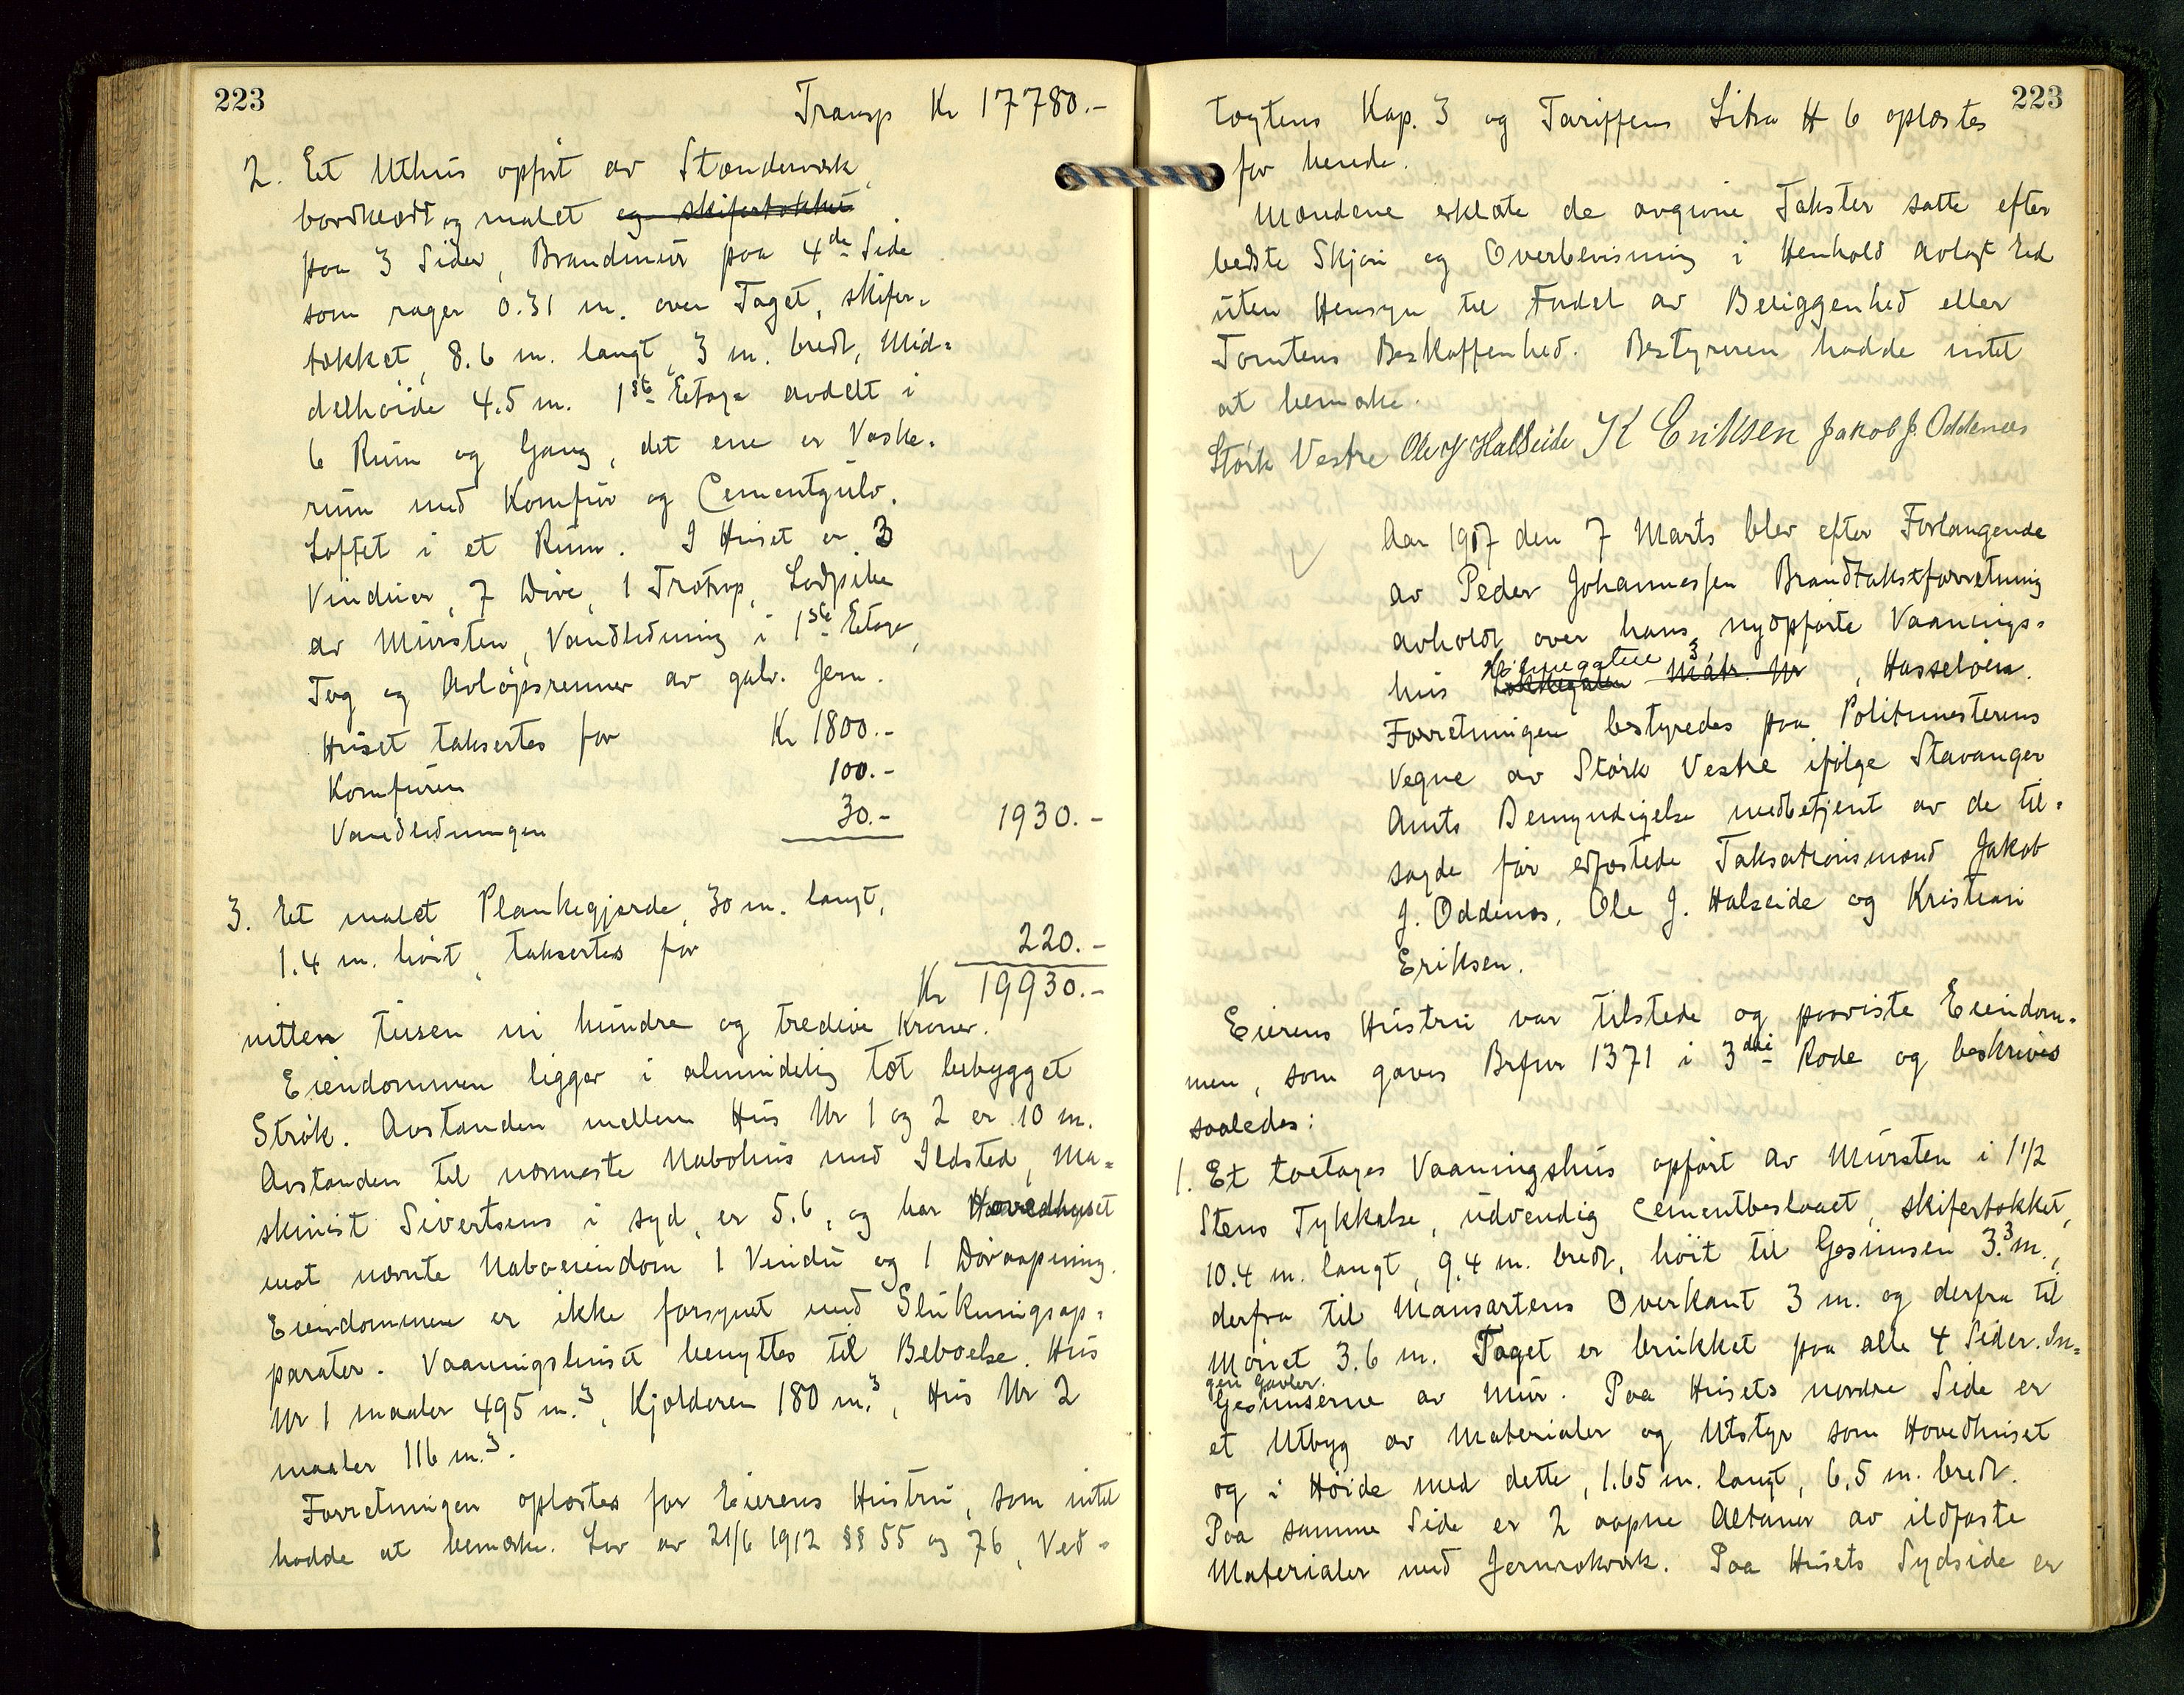 223
Transp Kr 17780.-
2. Et Uthus opført av Stænderverk,
bordklædt og malet og skifertækket
paa 3 Sider, Brandmur paa 4de Side
som rager 0.31 m. over Taget, skifer-
tækket, 8.6 m. langt, 3 m. bredt, Mid-
delhøide 4.5 m. 1ste Etage avdelt i
6 Rum og Gang, det ene er Vaske-
rum med Komfur og Cementgulv.
Loftet i et Rum. I Huset er 3
Vinduer, 7 Døre, 1 Trætrap, Lodpibe
av Mursten, Vandledning i 1ste Etage,
Tag og Avløpsrenner av galv. Jern.
Huset taksertes for Kr 1800.-
Komfuren 100.-
Vandledningen 30.- 1930.-
3. Et malet Plankegjerde, 30 m. langt,
1.4 m. høit, taksertes for 220.-
Kr 19930.-
nitten tusen ni hundre og tredive Kroner.
Eiendommen ligger i almindelig tæt bebygget
Strøk. Avstanden mellem Hus Nr 1 og 2 er 10 m.
Avstanden til nærmeste Nabohus med Ildsted, Ma-
skinist Sivertsens i syd, er 5.6, og har Hovedhuset
mot nævnte Naboeiendom 1 Vindu og 1 Døraapning.
Eiendommen er ikke forsynet med Slukningsap-
parater. Vaaningshuset benyttes til Beboelse. Hus
Nr 1 maaler 495 m.3, Kjælderen 180 m.3, Hus Nr 2
maaler 116 m.3.
Forretningen oplæstes for Eierens Hustru, som intet
hadde at bemærke. Lov av 21/6 1912 §§ 55 og 76, Ved-
223
tægtens Kap. 3 og Tariffens Litra H 6 oplæstes
for hende.
Mændene erklærte de avgivne Takster satte efter
bedste Skjøn og Overbevisning i Henhold avlagt Ed
uten Hensyn til Fordel av Beliggenhed eller
Tomtens Beskaffenhed. Bestyreren hadde intet
at bemærke.
Størk Vestre Ole J Halseide K Eriksen Jakob J. Oddenæs
Aar 1917 den 7 Marts blev efter Forlangende
av Peder Johannessen Brandtakstforretning
avholdt over hans nyopførte Vaanings-
hus Matr. Nr 3, Hasseløen.
Forretningen bestyredes paa Politimesterens
Vegne av Størk Vestre ifølge Stavanger
Amts Bemyndigelse medbetjent av de til-
sagde før edfæstede Taksationsmænd Jakob
J. Oddenæs, Ole J. Halseide og Kristian
Eriksen.
Eierens Hustru var tilstede og paaviste Eiendom-
men, som gaves Brfnr 1371 i 3die Rode og beskrives
saaledes:
1. Et toetages Vaaningshus opført av Mursten i 1 1/2
Stens Tykkelse, udvendig Cementbeslaaet, skifertækket,
10.4 m. langt, 9.4 m. bredt, høit til Gesimsen 3.3 m.,
derfra til Mansartens Overkant 3 m. og derfra til
Mønet 3.6 m. Taget er brukket paa alle 4 Sider. In-
gen Gavler.
Gesimserne av Mur. Paa Husets nordre Side er
et Utbyg av Materialer og Utstyr som Hovedhuset
og i Høide med dette, 1.65 m. langt, 6.5 m. bredt.
Paa samme Side er 2 aapne Altaner av ildfaste
Materialer med Jernrækverk. Paa Husets Sydside er